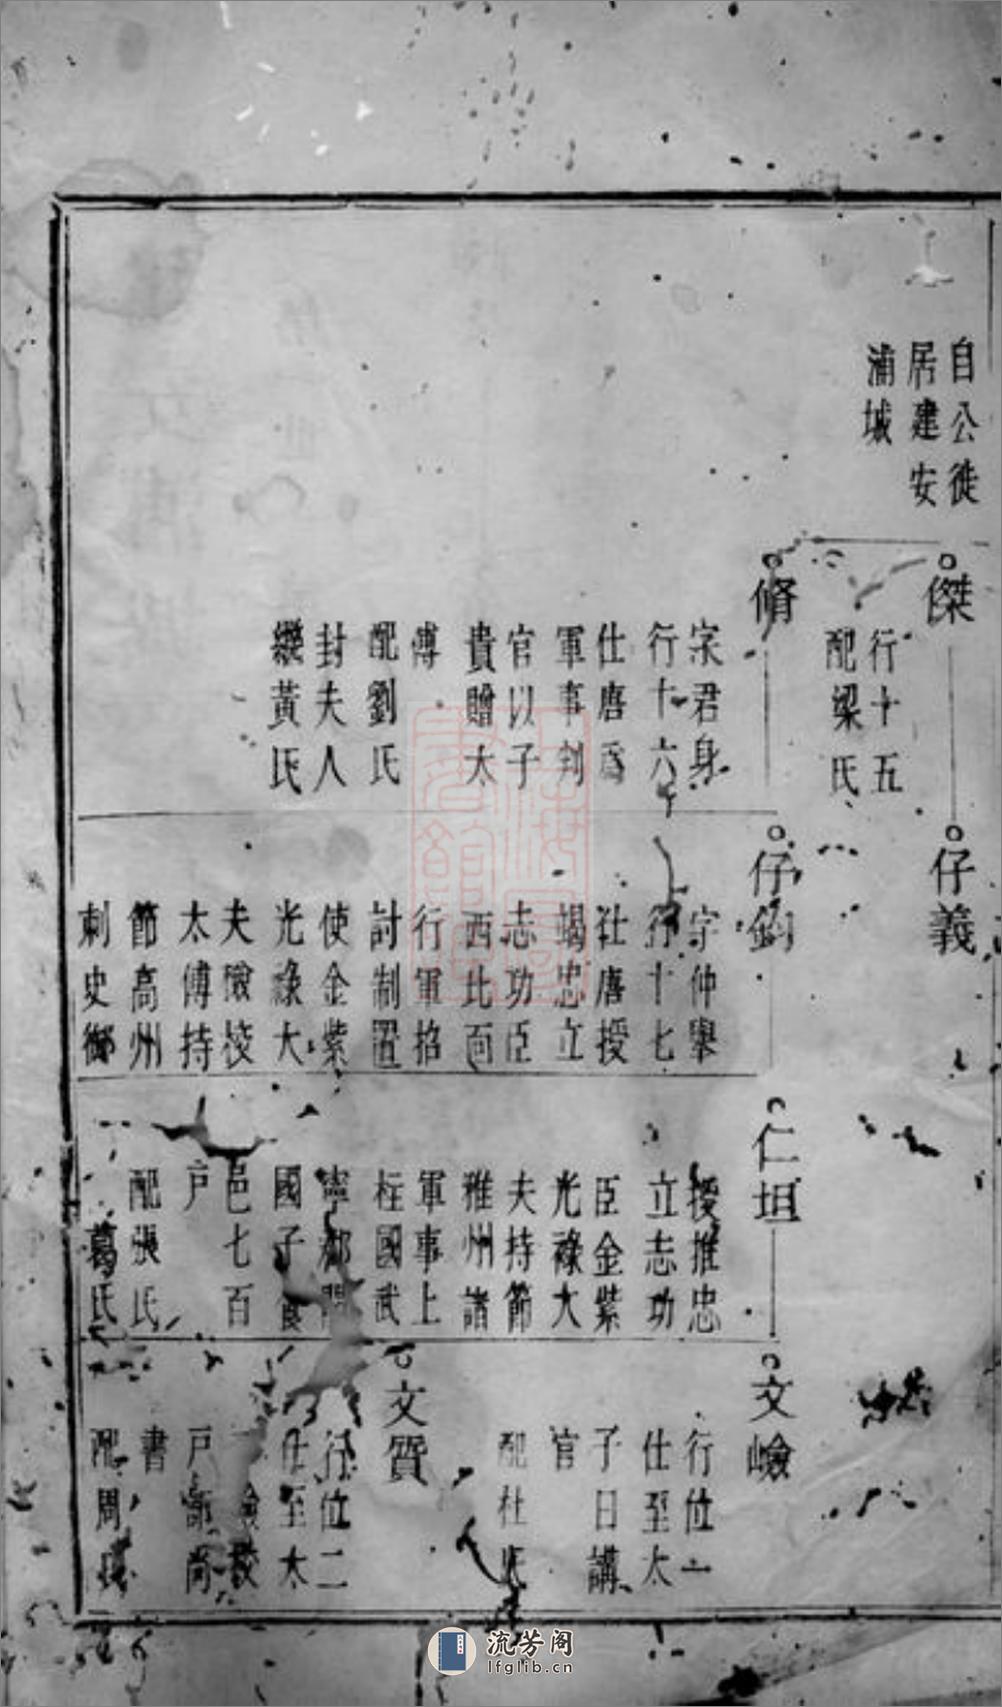 自公徙
居建安
浦城
傑
行十五
配梁氏
脩
字君身
行十六
仕唐爲
軍事判
官以子
貴贈太
傅
配劉氏
封夫人
繼黃氏
仔義
仔鈞
字仲舉
行十七
仕唐授
竭忠立
志功臣
西北面
行軍招
討制置
使金紫
光祿大
夫檢校
太傅持
節高州
刺史鄉
仁坦
授推忠
立志功
臣金紫
光祿大
夫持節
雅州諸
軍事上
柱國武
寧郡開
國子食
邑七百
戶
配張氏
葛氏
文嶮
行位一
仕至太
子日講
官
配杜氏
文質
行位二
仕至太
檢校
戶部尚
書
配周氏
流芳阁
lfglib.cn